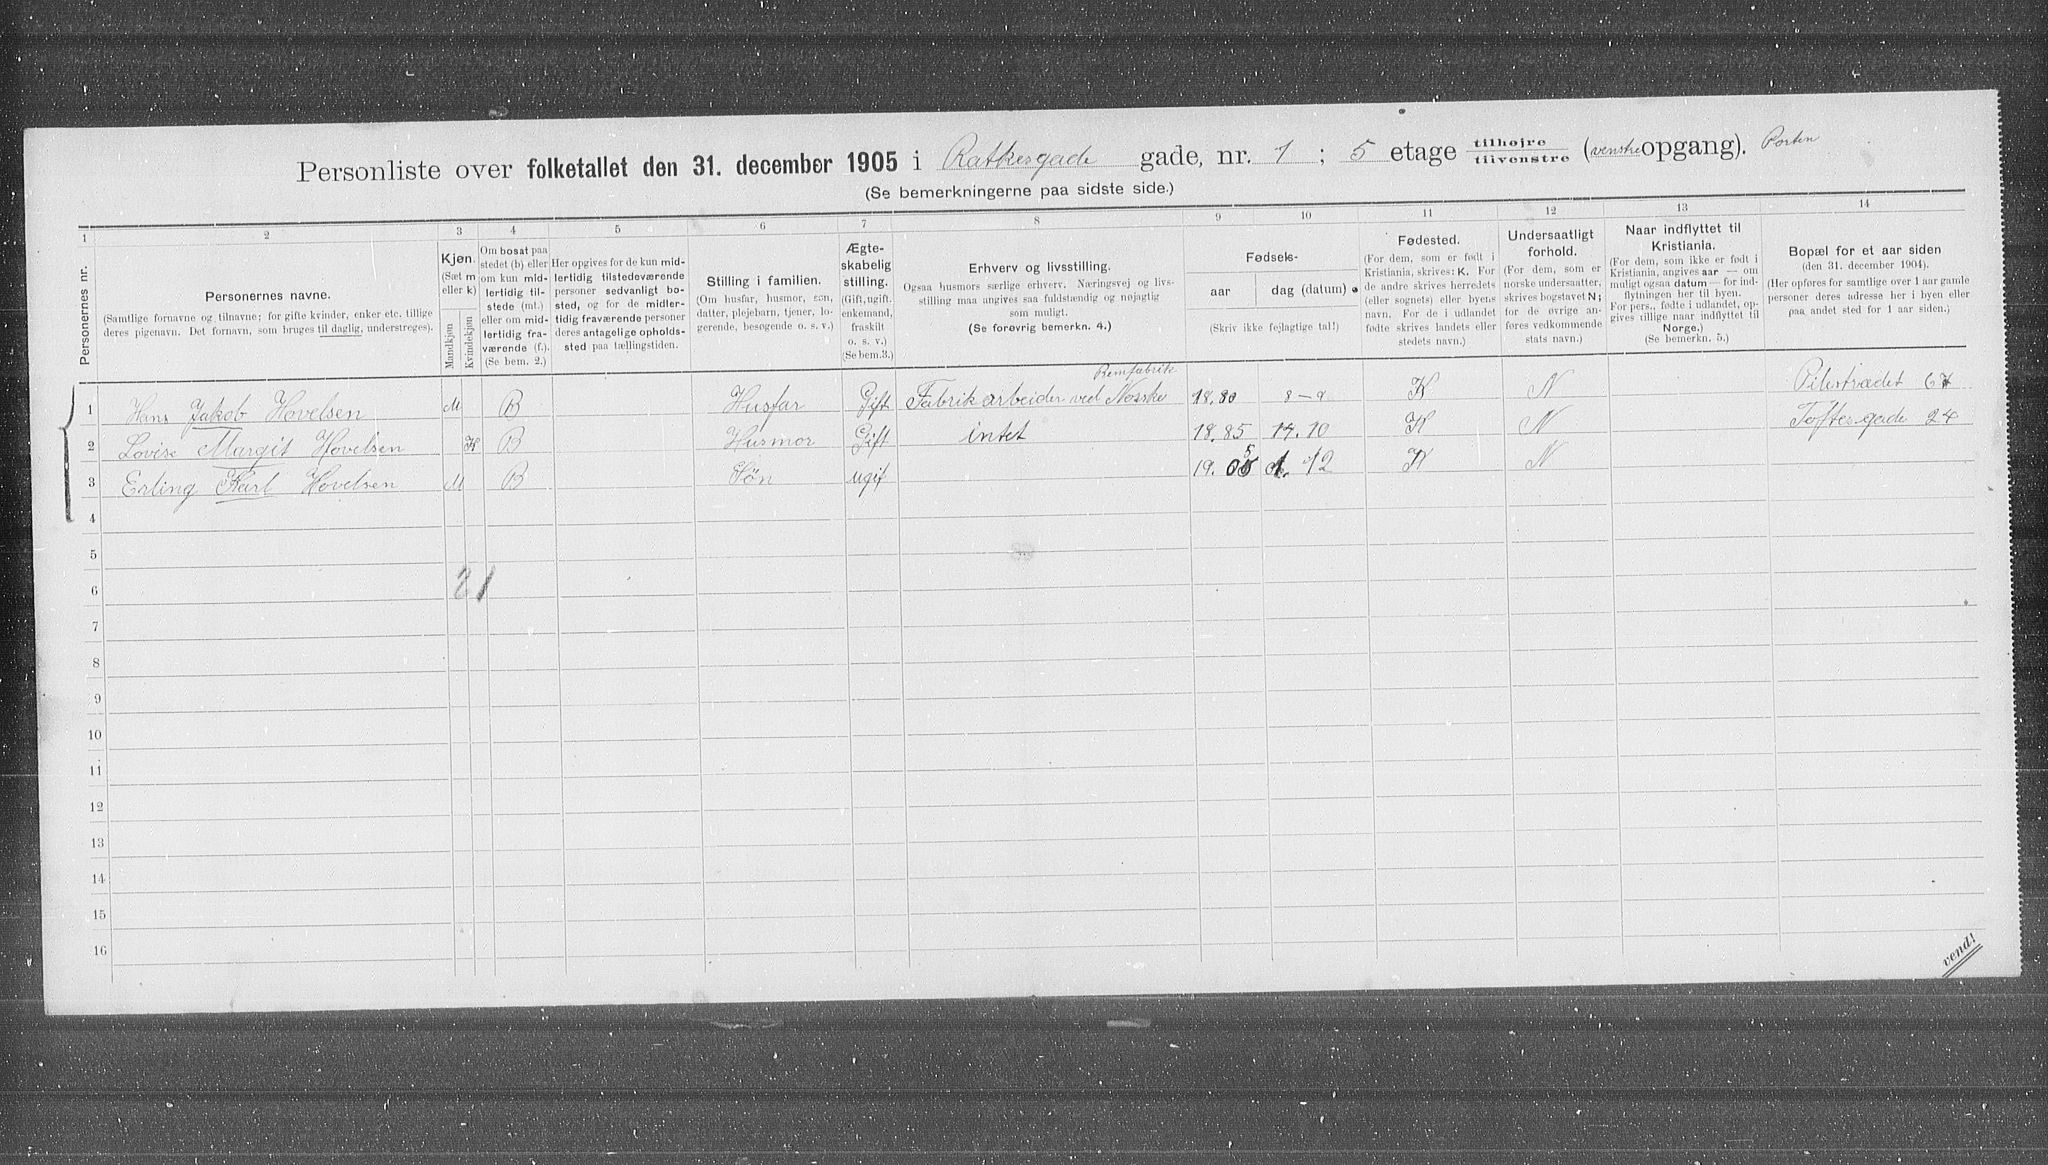 Personliste over folketallet den 31. december 1905 i Ratkesgade gade, nr. 1 ; 5 etage tilhøjre tilvenstre (venstre opgang). Porten
(Se bemerkningerne paa sidste side.)
1 2 3 4 5 6 7 8 9 10 11 12 13 14
Personernes nr.
Personernes navne.
(Samtlige fornavne og tilnavne; for gifte kvinder, enker etc. tillige
deres pigenavn. Det fornavn, som bruges til daglig, understreges).
Kjøn.
(Sæt m
eller k)
Mandkjøn
Kvindekjøn
Om bosat paa
stedet (b) eller
om kun mid-
lertidig til-
stede (mt.)
eller om mid-
lertidig fra-
værende (f.).
(Se bem. 2.)
Her opgives for de kun mid-
lertidig tilstedeværende
personer sedvanligt bo-
sted, og for de midler-
tidig fraværende personer
deres antagelige opholds-
sted paa tællingstiden.
Stilling i familien.
(Om husfar, husmor, søn,
datter, plejebarn, tjener, lo-
gerende, besøgende o. s. v.)
Ægte-
skabelig
stilling.
(Gift, ugift,
enkemand,
fraskilt
o. s. v.)
(Se bem.3.)
Erhverv og livsstilling.
Ogsaa husmors særlige erhverv. Næringsvej og livs-
stilling maa angives saa fuldstændig og nøjagtig
som muligt.
(Se forøvrig bemerkn. 4.)
Fødsels-
aar dag (datum)
(Skriv ikke fejlagtige tal!)
Fødested.
(For dem, som er født i
Kristiania, skrives: K. For
de andre skrives herredets
(eller sognets) eller byens
navn. For de i udlandet
fødte skrives landets eller
stedets navn.)
Undersaatligt
forhold.
(For dem, som er
norske undersaatter,
skrives bogstavet N;
for de øvrige an-
føres vedkommende
stats navn.)
Naar indflyttet til
Kristiania.
(For dem, som ikke er født i
Kristiania, angives aar — om
muligt ogsaa datum — for ind-
flytningen her til byen.
For pers., fødte i udlandet, op-
gives tillige naar indflyttet til
Norge.)
(Se bemerkn. 5.)
Bopæl for et aar siden
(den 31. december 1904).
(Her opføres for samtlige over 1 aar gamle
personer deres adresse her i byen eller
paa andet sted for 1 aar siden.)
Remfabrik
1 Hans Jakob Hovelsen M B Husfar Gift Fabrikarbeider ved Norske 18.80 8-9 K N Pilestrædet 67
2 Lovise Margit Hovelsen K B Husmor Gift intet 18.85 14.10 K N Toftesgade 24
3 Erling Karl Hovelsen M B Søn ugif 19.05 1. 12 K N
4
5
6 2 1
7
8
9
10
11
12
13
14
15
16
vend!